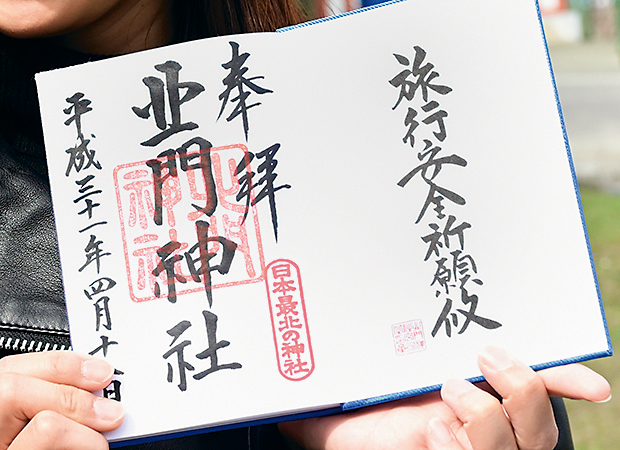 旅行安全祈願攸
奉拝
日本最北の神社
北門神社
北門神社
平成三十一年四月十八日